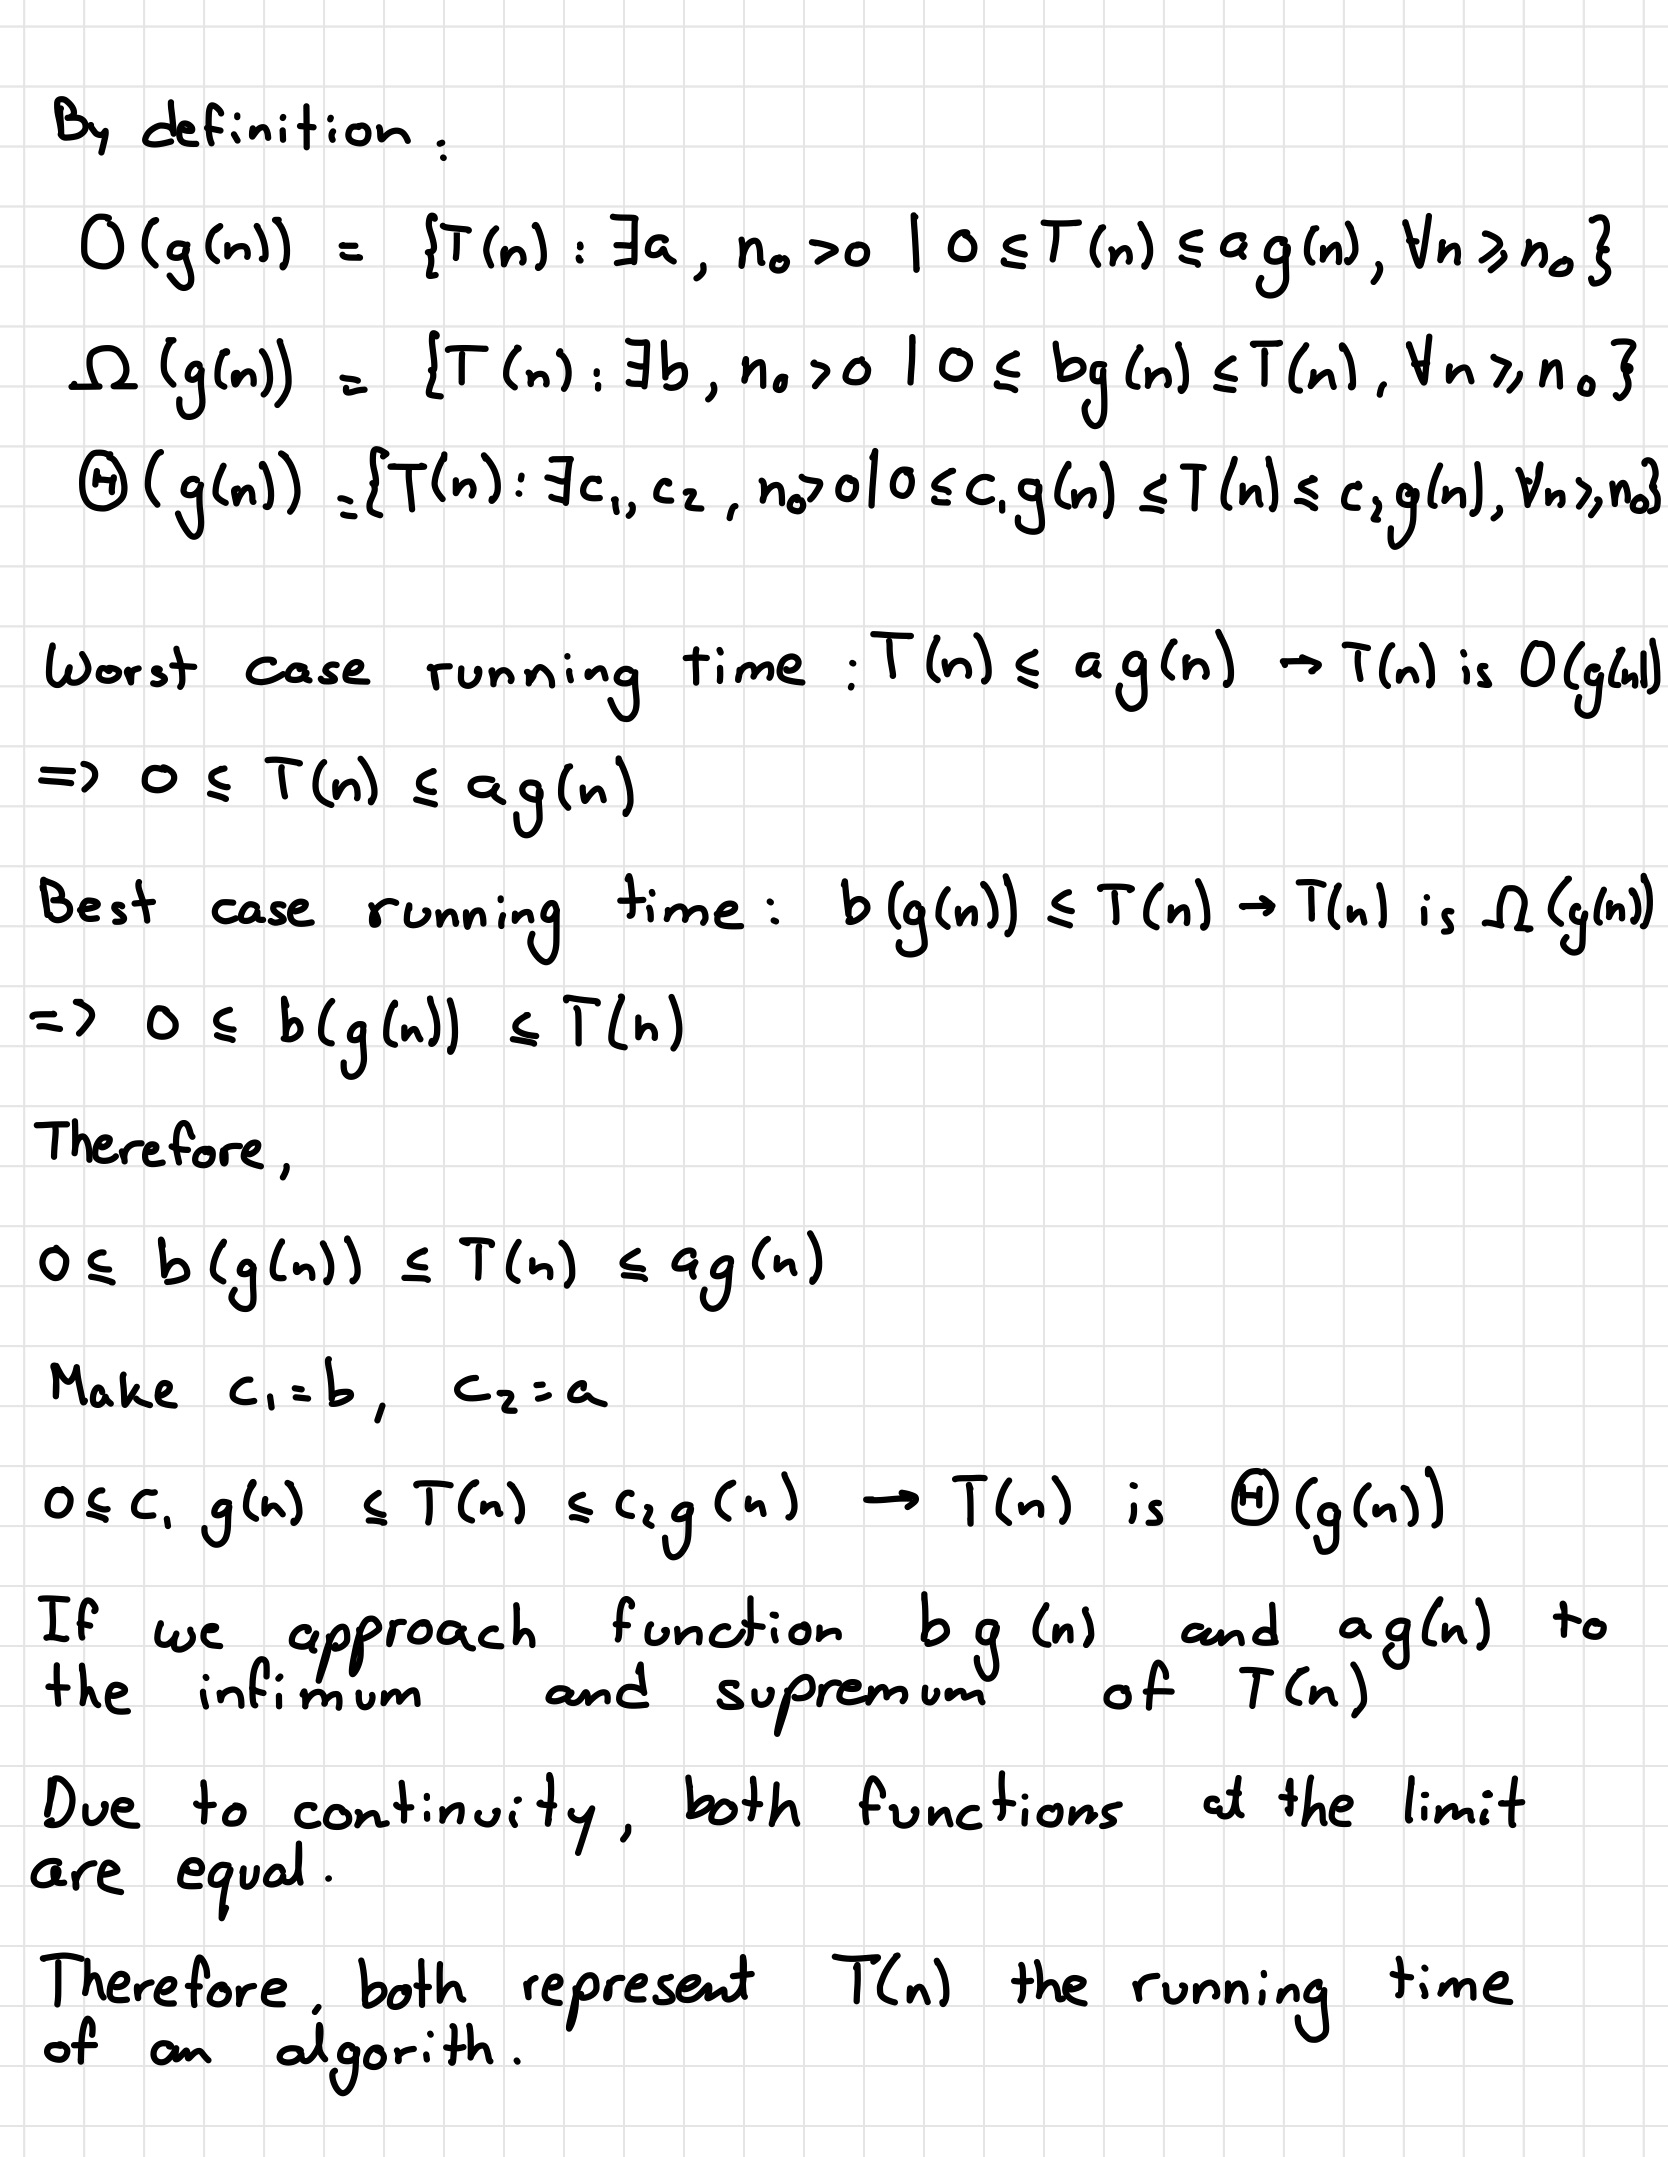 By definition:
O(g(n)) = {T(n): ∃a, n₀>0 | 0 ≤ T(n) ≤ ag(n), ∀n ⩾ n₀}
Ω(g(n)) = {T(n): ∃b, n₀>0 | 0 ≤ bg(n) ≤ T(n), ∀n ⩾ n₀}
Θ(g(n)) = {T(n): ∃c₁, c₂, n₀>0 | 0 ≤ c₁g(n) ≤ T(n) ≤ c₂g(n), ∀n ⩾ n₀}
Worst case running time: T(n) ≤ ag(n) → T(n) is O(g(n))
=> 0 ≤ T(n) ≤ ag(n)
Best case running time: b(g(n)) ≤ T(n) → T(n) is Ω(g(n))
=> 0 ≤ b(g(n)) ≤ T(n)
Therefore,
0 ≤ b(g(n)) ≤ T(n) ≤ ag(n)
Make c₁=b, c₂=a
0 ≤ c₁ g(n) ≤ T(n) ≤ c₂g(n) → T(n) is Θ(g(n))
If we approach function bg(n) and ag(n) to
the infimum and supremum of T(n)
Due to continuity, both functions at the limit
are equal.
Therefore, both represent T(n) the running time
of an algorith.